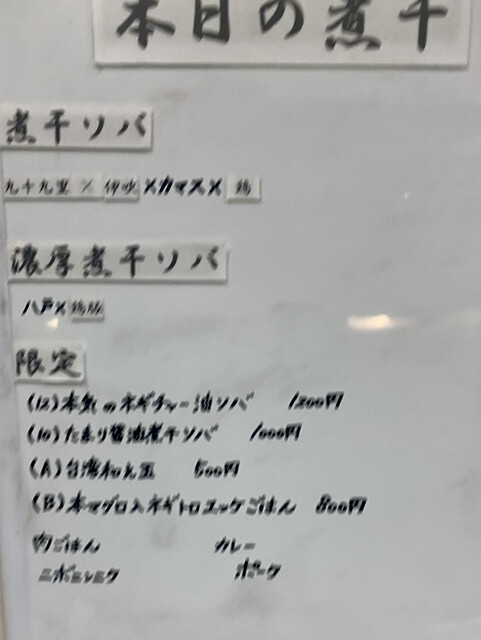 本日の煮干
煮干ソバ
九十九里×伊吹×カマス×鶏
濃厚煮干ソバ
八戸×鶏豚
限定
(12)本気のネギチャー油ソバ 1200円
(10)たまり醤油煮干ソバ 1000円
(A)台湾和え玉 500円
(B)本マグロ入ネギトロユッケごはん 800円
肉ごはん カレー
ニボニンニク ポーク